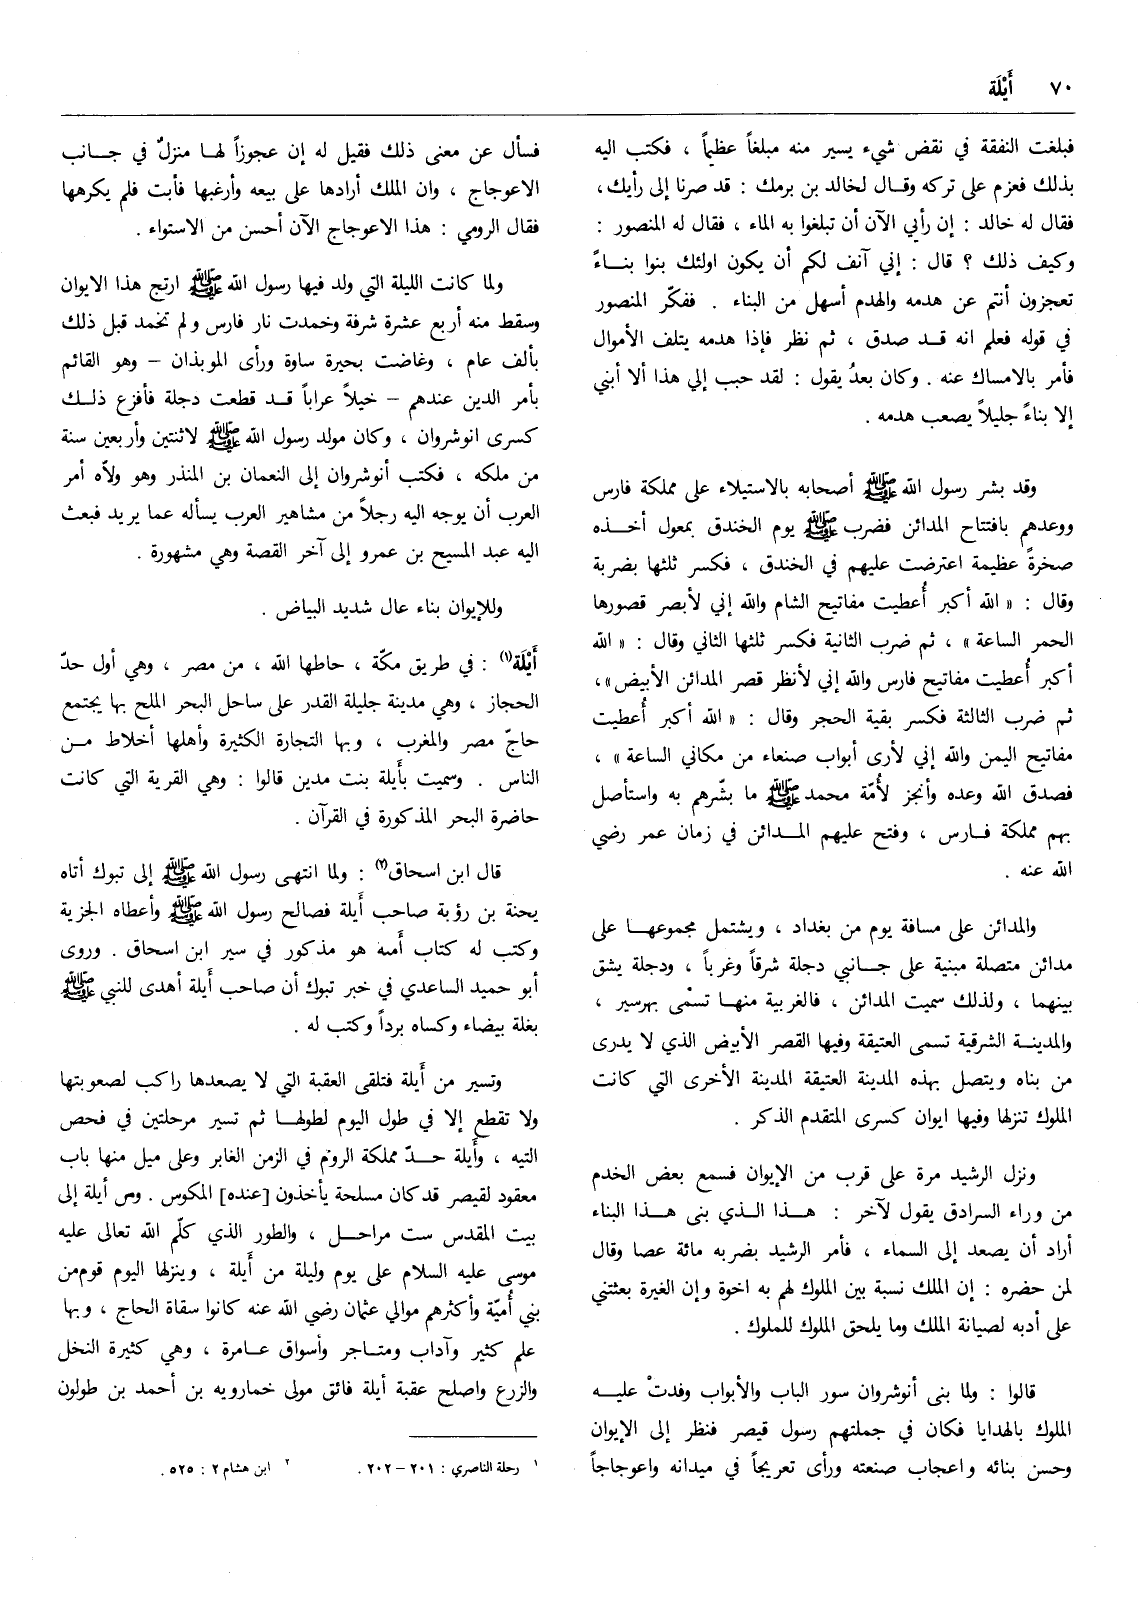 ٧٠ أَيْلَة
فبلغت النفقة في نقض شيء يسير منه مبلغاً عظيماً ، فكتب اليه
بذلك فعزم على تركه وقال لخالد بن برمك : قد صرنا إلى رأيك،
فقال له خالد : إن رأيي الآن أن تبلغوا به الماء ، فقال له المنصور :
وكيف ذلك ؟ قال : إني آنف لكم أن يكون اولئك بنوا بنـــاءً
تعجزون أنتم عن هدمه والهدم أسهل من البناء . ففكّر المنصور
في قوله فعلم انه قــد صدق ، ثم نظر فإذا هدمه يتلف الأموال
فأمر بالامساك عنه . وكان بعدُ يقول : لقد حبب إلي هذا ألا أبني
إلا بناءً جليلاً يصعب هدمه .
وقد بشر رسول الله ﷺ أصحابه بالاستيلاء على مملكة فارس
ووعدهم بافتتاح المدائن فضرب ﷺ يوم الخندق بمعول أخــذه
صخرةً عظيمة اعترضت عليهم في الخندق ، فكسر ثلثها بضربة
وقال : « الله أكبر أُعطيت مفاتيح الشام والله إني لأبصر قصورها
الحمر الساعة » ، ثم ضرب الثانية فكسر ثلثها الثاني وقال : « الله
أكبر أُعطيت مفاتيح فارس والله إني لأنظر قصر المدائن الأبيض»،
ثم ضرب الثالثة فكسر بقية الحجر وقال : « الله أكبر أُعطيت
مفاتيح اليمن والله إني لأرى أبواب صنعاء من مكاني الساعة » ،
فصدق الله وعده وأنجز لأُمّة محمد ﷺ ما بشّرهم به واستأصل
بهم مملكة فــارس ، وفتح عليهم المــدائن في زمان عمر رضي
الله عنه .
والمدائن على مسافة يوم من بغداد ، ويشتمل مجموعهــا على
مدائن متصلة مبنية على جــانبي دجلة شرقاً وغرباً ، ودجلة يشق
بينهما ، ولذلك سميت المدائن ، فالغربية منهــا تسمّى بهرسير ،
والمدينــة الشرقية تسمى العتيقة وفيها القصر الأبيض الذي لا يدرى
من بناه ويتصل بهذه المدينة العتيقة المدينة الأخرى التي كانت
الملوك تنزلها وفيها ايوان كسرى المتقدم الذكر .
ونزل الرشيد مرة على قرب من الإيوان فسمع بعض الخدم
من وراء السرادق يقول لآخر : هــذا الــذي بنى هــذا البناء
أراد أن يصعد إلى السماء ، فأمر الرشيد بضربه مائة عصا وقال
لمن حضره : إن الملك نسبة بين الملوك لهم به اخوة وإن الغيرة بعثتني
على أدبه لصيانة الملك وما يلحق الملوك للملوك .
قالوا : ولما بنى أنوشروان سور الباب والأبواب وفدتْ عليــه
الملوك بالهدايا فكان في جملتهم رسول قيصر فنظر إلى الإيوان
وحسن بنائه واعجاب صنعته ورأى تعريجاً في ميدانه واعوجاجاً
فسأل عن معنى ذلك فقيل له إن عجوزاً لهــا منزلٌ في جــانب
الاعوجاج ، وان الملك أرادها على بيعه وأرغبها فأبت فلم يكرهها
فقال الرومي : هذا الاعوجاج الآن أحسن من الاستواء .
ولما كانت الليلة التي ولد فيها رسول الله ﷺ ارتج هذا الايوان
وسقط منه أربع عشرة شرفة وخمدت نار فارس ولم تخمد قبل ذلك
بألف عام ، وغاضت بحيرة ساوة ورأى الموبذان – وهو القائم
بأمر الدين عندهم – خيلاً عراباً قــد قطعت دجلة فأفزع ذلــك
كسرى انوشروان ، وكان مولد رسول الله ﷺ لاثنتين وأربعين سنة
من ملكه ، فكتب أنوشروان إلى النعمان بن المنذر وهو ولاّه أمر
العرب أن يوجه اليه رجلاً من مشاهير العرب يسأله عما يريد فبعث
اليه عبد المسيح بن عمرو إلى آخر القصة وهي مشهورة .
وللإيوان بناء عال شديد البياض .
أَيْلَة⁽¹⁾ : في طريق مكّة ، حاطها الله ، من مصر ، وهي أول حدّ
الحجاز ، وهي مدينة جليلة القدر على ساحل البحر الملح بها يجتمع
حاجّ مصر والمغرب ، وبها التجارة الكثيرة وأهلها أخلاط مــن
الناس . وسميت بأَيلة بنت مدين قالوا : وهي القرية التي كانت
حاضرة البحر المذكورة في القرآن .
قال ابن اسحاق⁽²⁾ : ولما انتهى رسول الله ﷺ إلى تبوك أتاه
يحنة بن رؤبة صاحب أَيلة فصالح رسول الله ﷺ وأعطاه الجزية
وكتب له كتاب أَمنه هو مذكور في سير ابن اسحاق . وروى
أبو حميد الساعدي في خبر تبوك أن صاحب أَيلة أهدى للنبي ﷺ
بغلة بيضاء وكساه برداً وكتب له .
وتسير من أَيلة فتلقى العقبة التي لا يصعدها راكب لصعوبتها
ولا تقطع إلا في طول اليوم لطولهــا ثم تسير مرحلتين في فحص
التيه ، وأَيلة حــدّ مملكة الروم في الزمن الغابر وعلى ميل منها باب
معقود لقيصر قد كان مسلحة يأخذون [عنده] المكوس . ومن أيلة إلى
بيت المقدس ست مراحــل ، والطور الذي كلّم الله تعالى عليه
موسى عليه السلام على يوم وليلة من أَيلة ، وينزلها اليوم قوم من
بني أُميّة وأكثرهم موالي عثمان رضي الله عنه كانوا سقاة الحاج ، وبها
علم كثير وآداب ومتــاجر وأسواق عــامرة ، وهي كثيرة النخل
والزرع واصلح عقبة أيلة فائق مولى خمارويه بن أحمد بن طولون
¹ رحلة الناصري : ٢٠١ – ٢٠٢ .
² ابن هشام ٢ : ٥٢٥ .